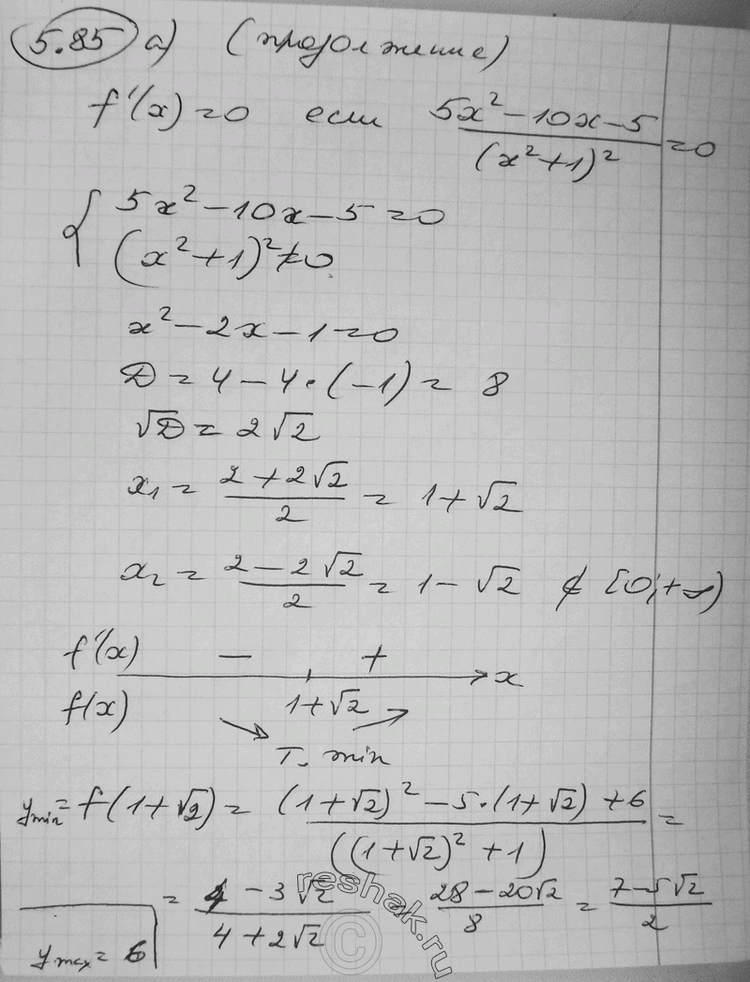 5.85 а) (продолжение)
f'(x) = 0 если (5x² − 10x − 5)/(x² + 1)² = 0
{ 5x² − 10x − 5 = 0
(x² + 1)² ≠ 0
x² − 2x − 1 = 0
D = 4 − 4·(−1) = 8
√D = 2√2
x₁ = (2 + 2√2)/2 = 1 + √2
x₂ = (2 − 2√2)/2 = 1 − √2 ∉ [0; +∞)
f'(x) − + x
f(x) 1+√2
т. min
y min = f(1+√2) = ((1+√2)² − 5·(1+√2) + 6)/((1+√2)² + 1) =
= (4 − 3√2)/(4 + 2√2) (28 − 20√2)/8 = (7 − 5√2)/2
y max = 6
reshak.ru
©